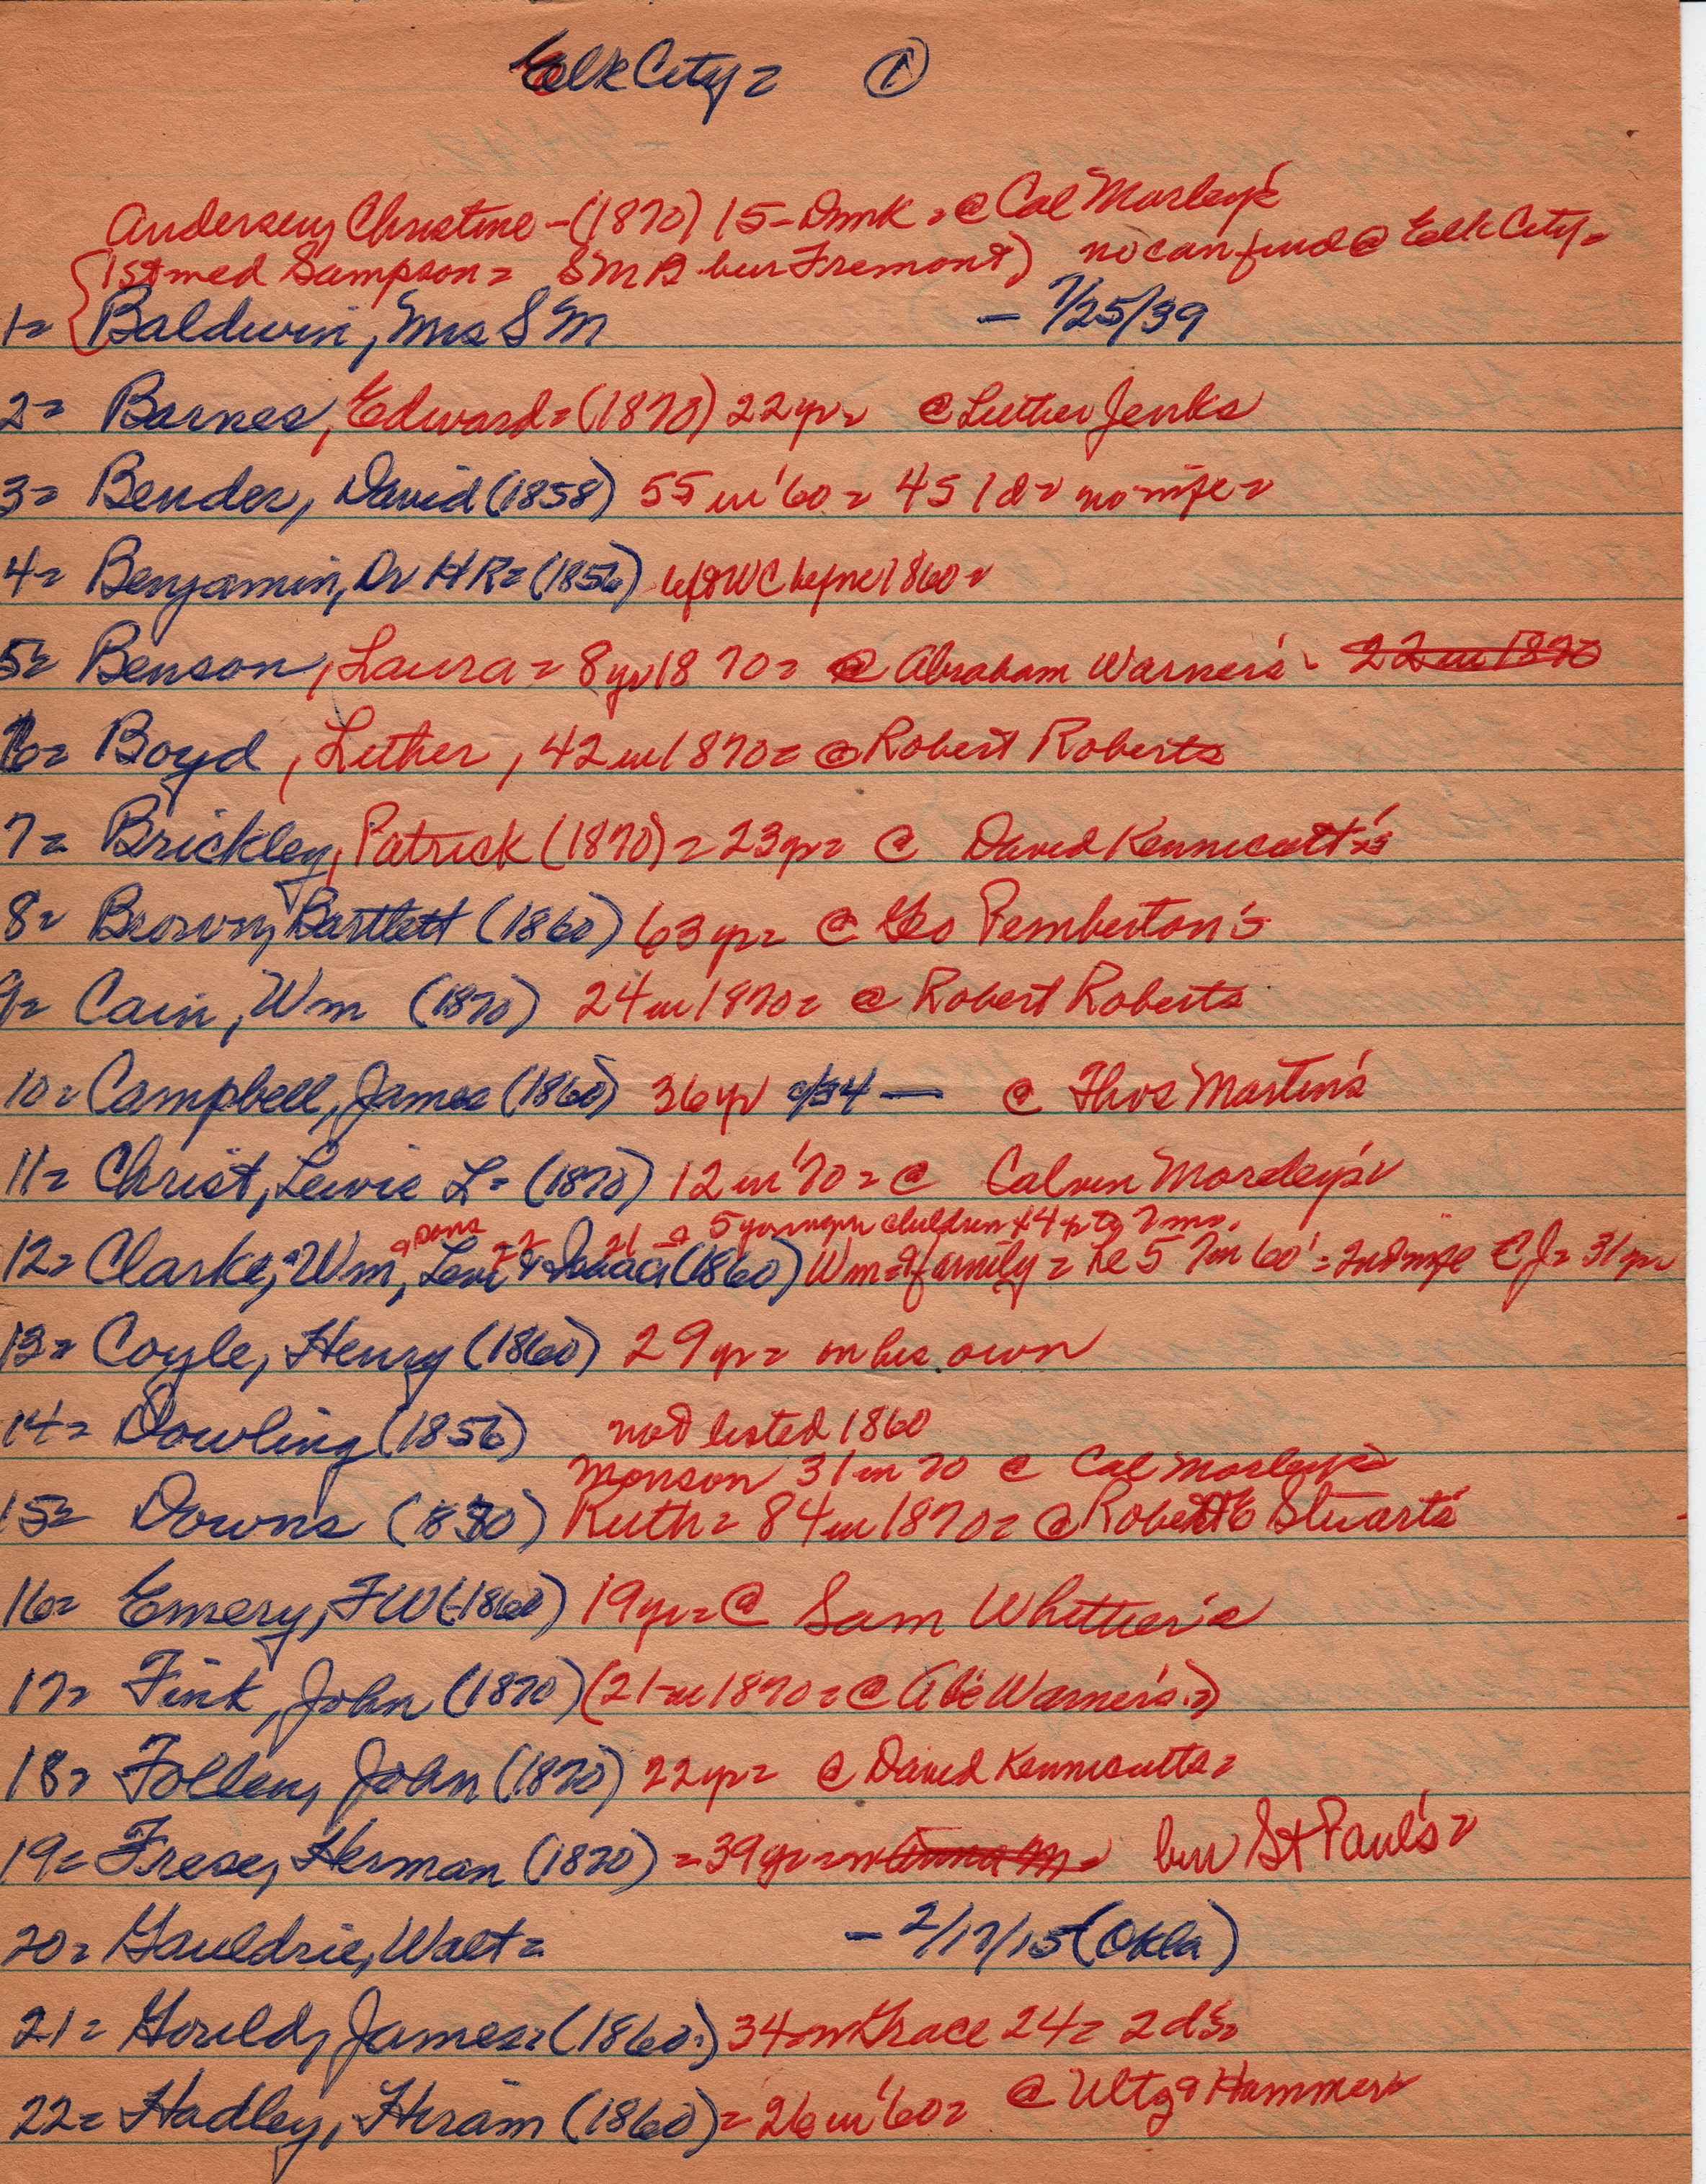 Elk City = ①
Andersen, Christine - (1870) 15 - Dmk = @ Cal Morley's
(1st med Sampson = SMB bur Fremont) no can find @ Elk City =
1= Baldwin, Mrs S M - 7/25/39
2= Barnes, Edward = (1870) 22 yr = @ Luther Jenks
3= Bender, David (1858) 55 in '60 = 4s 1d = no wife =
4= Benjamin, Dr H R = (1856) left WC before 1860 =
5= Benson, Laura = 8 yr 1870 = @ Abraham Warner's - 22 in 1870
6= Boyd, Luther, 42 in 1870 = @ Robert Roberts
7= Brickley, Patrick (1870) = 23 yr = @ David Kennicutt's
8= Brown, Bartlett (1860) 63 yr = @ Geo Pemberton's
9= Cain, Wm (1870) 24 in 1870 = @ Robert Roberts
10= Campbell, James (1860) 36 yr — @ Thos Martin's
11= Christ, Lewis L = (1870) 12 in '70 = @ Calvin Morley's =
& sons 22 21 & 5 younger children 14 yr to 7 mo.
12= Clarke, Wm, Levi & Isaac (1860) Wm = & family = he 57 in 60' = 2nd wife C J = 31 yr
13= Coyle, Henry (1860) 29 yr = on his own
14= Dowling (1856) not listed 1860
Monson 31 in 70 @ Cal Morley's
15= Downs (1870) Ruth = 84 in 1870 = @ Robert E Stuarts
16= Emery, F W (1860) 19 yr = @ Sam Whittier's
17= Fink, John (1870) (21 in 1870 = @ Abe Warner's =)
18= Follen, John (1870) 22 yr = @ David Kennicutts =
19= Frese, Herman (1870) = 39 yr = m Anna M = bur St Paul's =
20= Gauldrie, Walt = - 2/17/15 (Okla)
21= Gould, James = (1860=) 34 = m Grace 24 = 2 d's =
22= Hadley, Hiram (1860) = 26 in '60 = @ Ultz & Hammer =